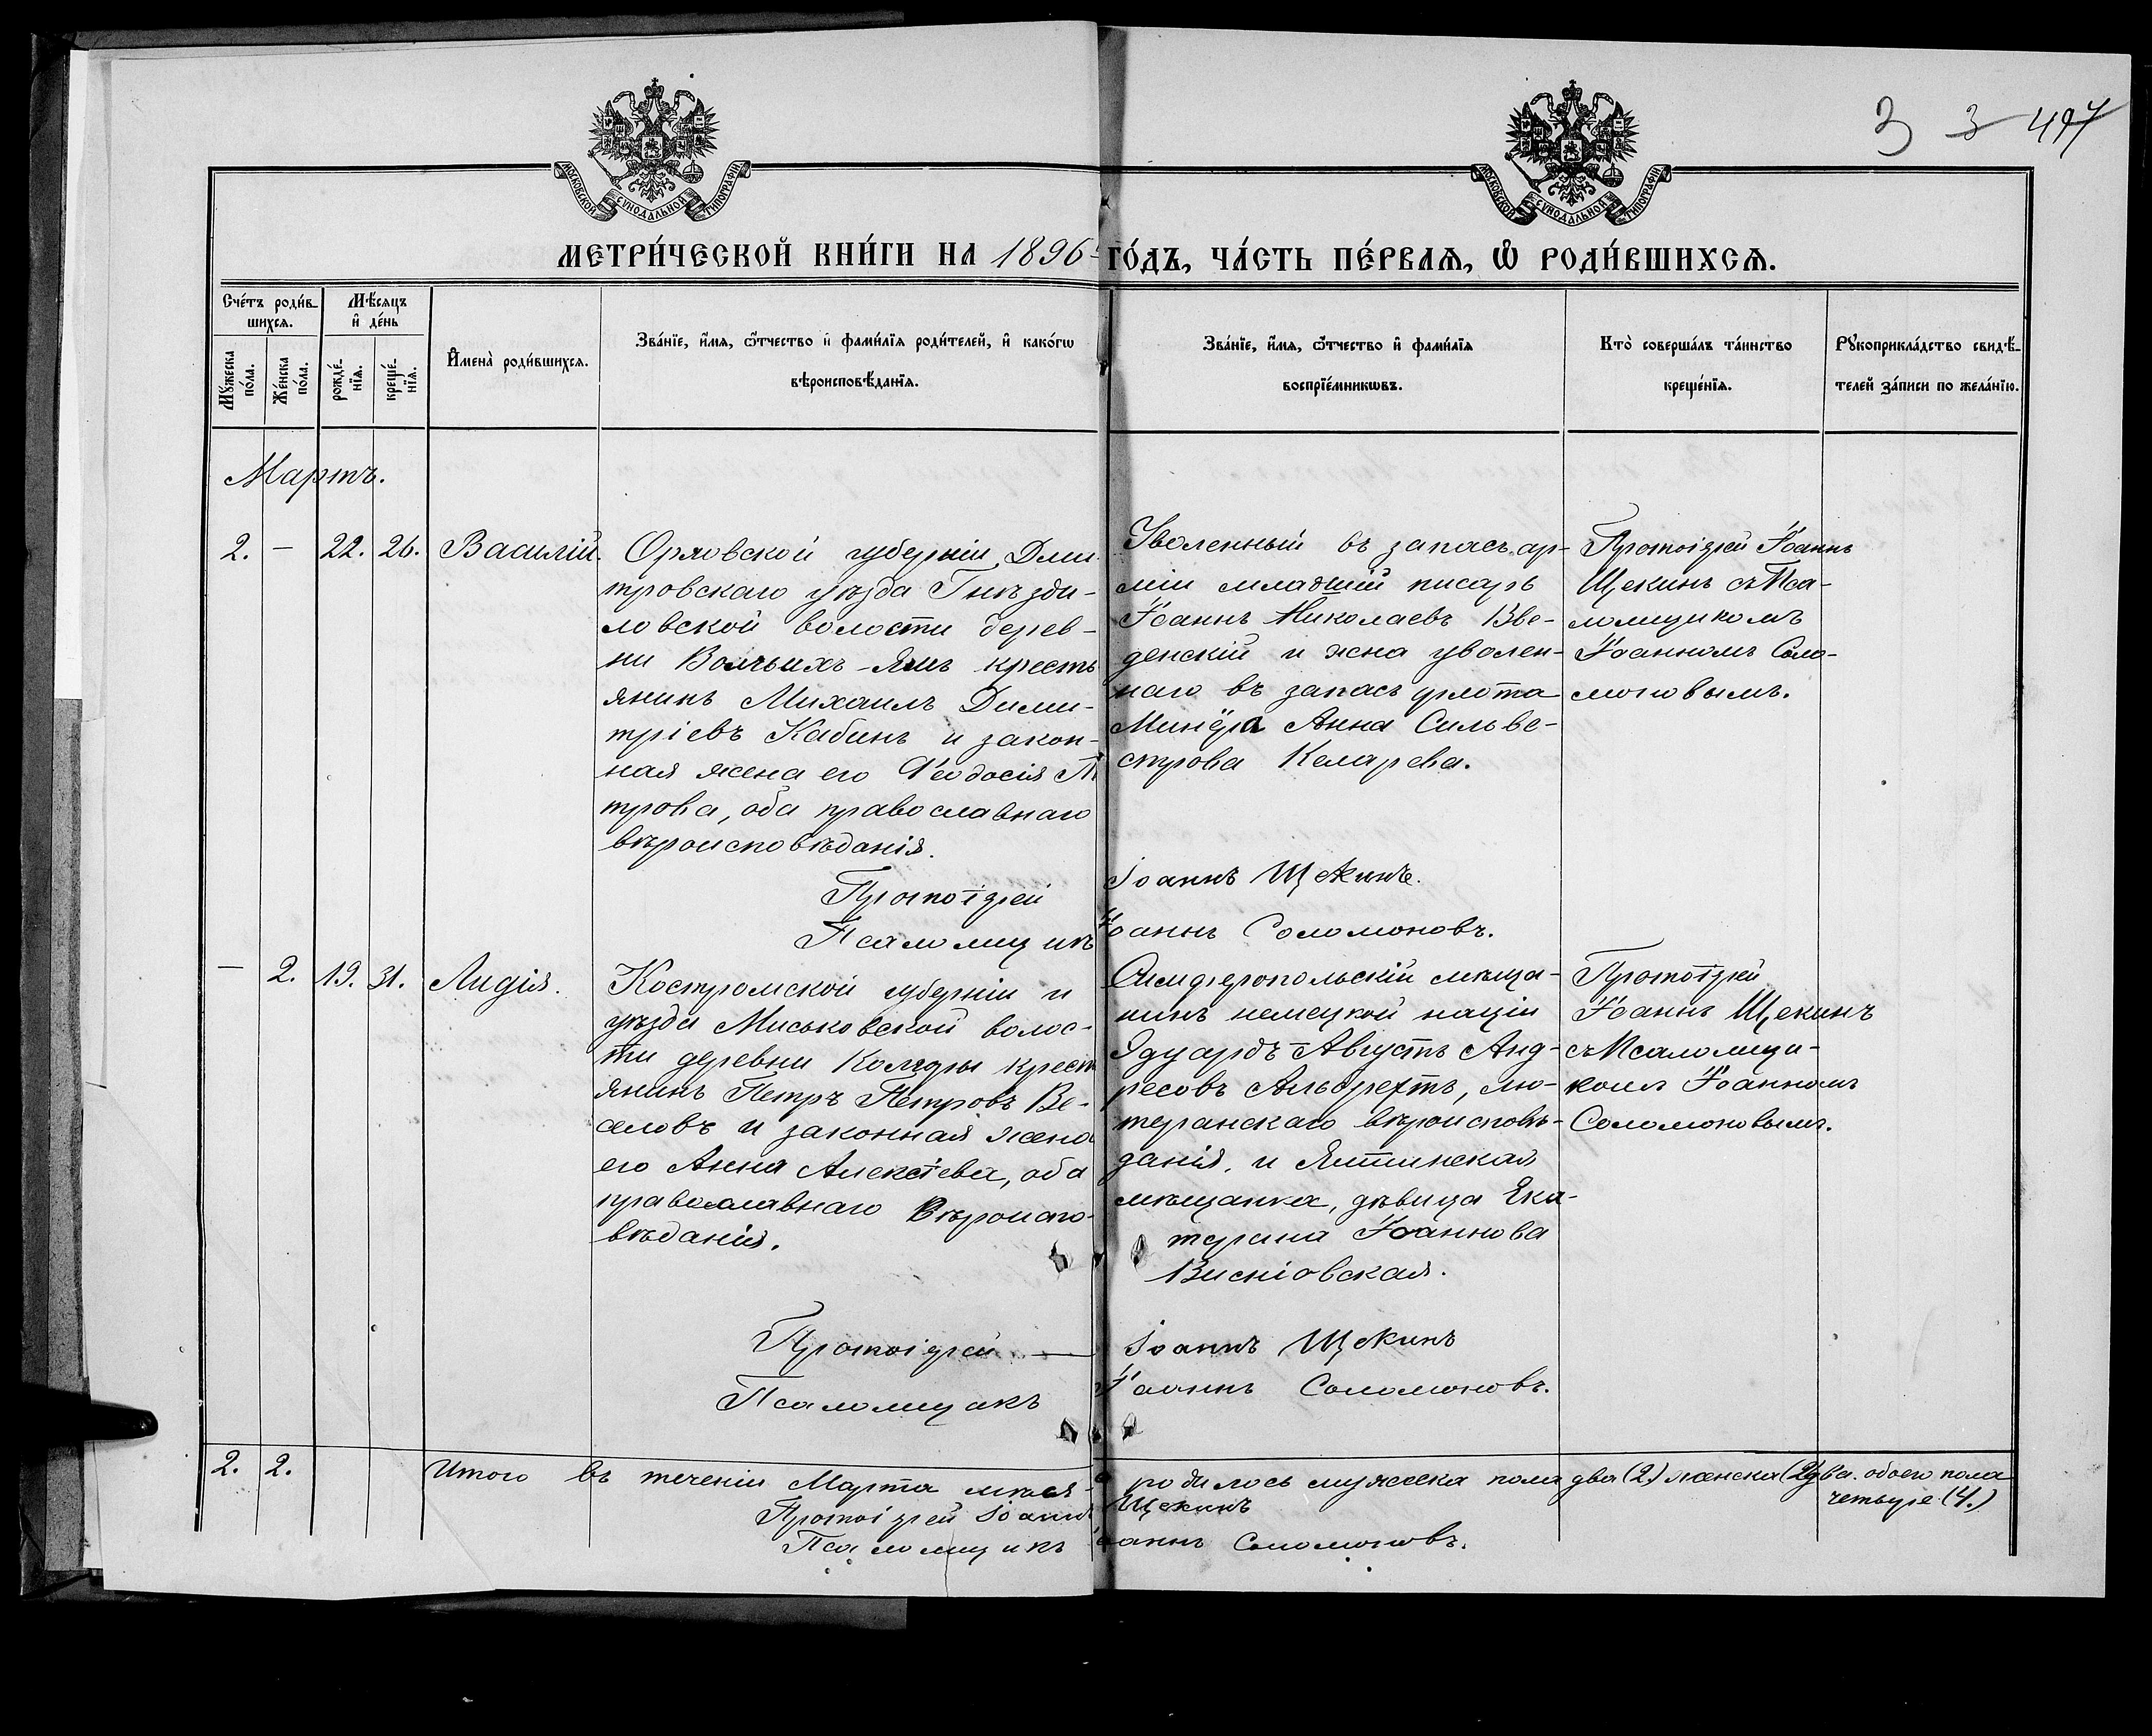 3 3 497
МОСКОВСКОЙ СѴНОДАЛЬНОЙ ТИПОГРАФІИ
МОСКОВСКОЙ СѴНОДАЛЬНОЙ ТИПОГРАФІИ
МЕТРИ́ЧЕСКОЙ КНИ́ГИ НА 1896 ГО́ДЪ, ЧА́СТЬ ПЕ́РВАЯ, Ѡ РОДИ́ВШИХСЯ.
Сче́тъ роди́в-
шихся.
Мꙋ́жеска
по́ла.
Же́нска
по́ла.
Мѣ́сяцъ
и҆ де́нь
рожде́-
нїя.
креще́-
нїя.
И҆мена̀ роди́вшихся.
Зва́нїе, и҆́мя, ѻ҆́тчество и҆ фами́лїя роди́телей, и҆ како́гѡ
вѣроисповѣ́данїя.
Зва́нїе, и҆́мя, ѻ҆́тчество и҆ фами́лїя
воспрїе́мникѡвъ.
Кто̀ соверша́лъ та́инство
креще́нїя.
Рꙋкоприкла́дство свидѣ́-
телей за́писи по жела́нїю.
Мартъ.
2. — 22. 26. Василій.
Орловской губерніи Дми-
тровскаго уѣзда Гнѣзди-
ловской волости дерев-
ни Волчьихъ-Ямъ кресть
янинъ Михаилъ Дими-
тріевъ Кабинъ и закон-
ная жена его Ѳеодосія П
трова, оба православнаго
вѣроисповѣданія.
Уволенный въ запасъ ар-
міи младшій писарь
Іоаннъ Николаевъ Вве-
денскій и жна уволен-
наго въ запасъ флота
Минёра Анна Сильве-
строва Келарева.
Протоіерей Іоаннъ
Щекинъ съ Пса-
ломщикомъ
Іоанномъ Соло-
моновымъ.
Протоіерей Іоаннъ Щекинъ.
Псаломщикъ Іоаннъ Соломоновъ.
— 2. 19. 31. Лидія.
Костромской губерніи и
уѣзда Миськовской волос-
ти деревни Колгоры крест
янинъ Петръ Петровъ Ве-
селовъ и законная жена
его Анна Алексѣева, оба
православнаго вѣроиспо-
вѣданія.
Симферопольскій мѣща-
нинъ немецкой націи
Эдуардъ-Августъ Анд-
ресовъ Альбрехтъ, лю-
теранскаго вѣроисповѣ-
данія, и Ялтинская
мѣщанка, дѣвица Ека-
терина Іоаннова
Висніовская.
Протоіерей
Іоаннъ Щекинъ
съ Псаломщи-
комъ Іоанномъ
Соломоновымъ.
Протоіерей — Іоаннъ Щекинъ
Псаломщикъ Іоаннъ Соломоновъ.
2. 2. Итого въ теченіи Марта мѣсяца родилось мужеска пола два (2.) женска (2) два. обоего пола
четыре (4.)
Протоіерей Іоаннъ Щекинъ
Псаломщикъ Іоаннъ Соломоновъ.